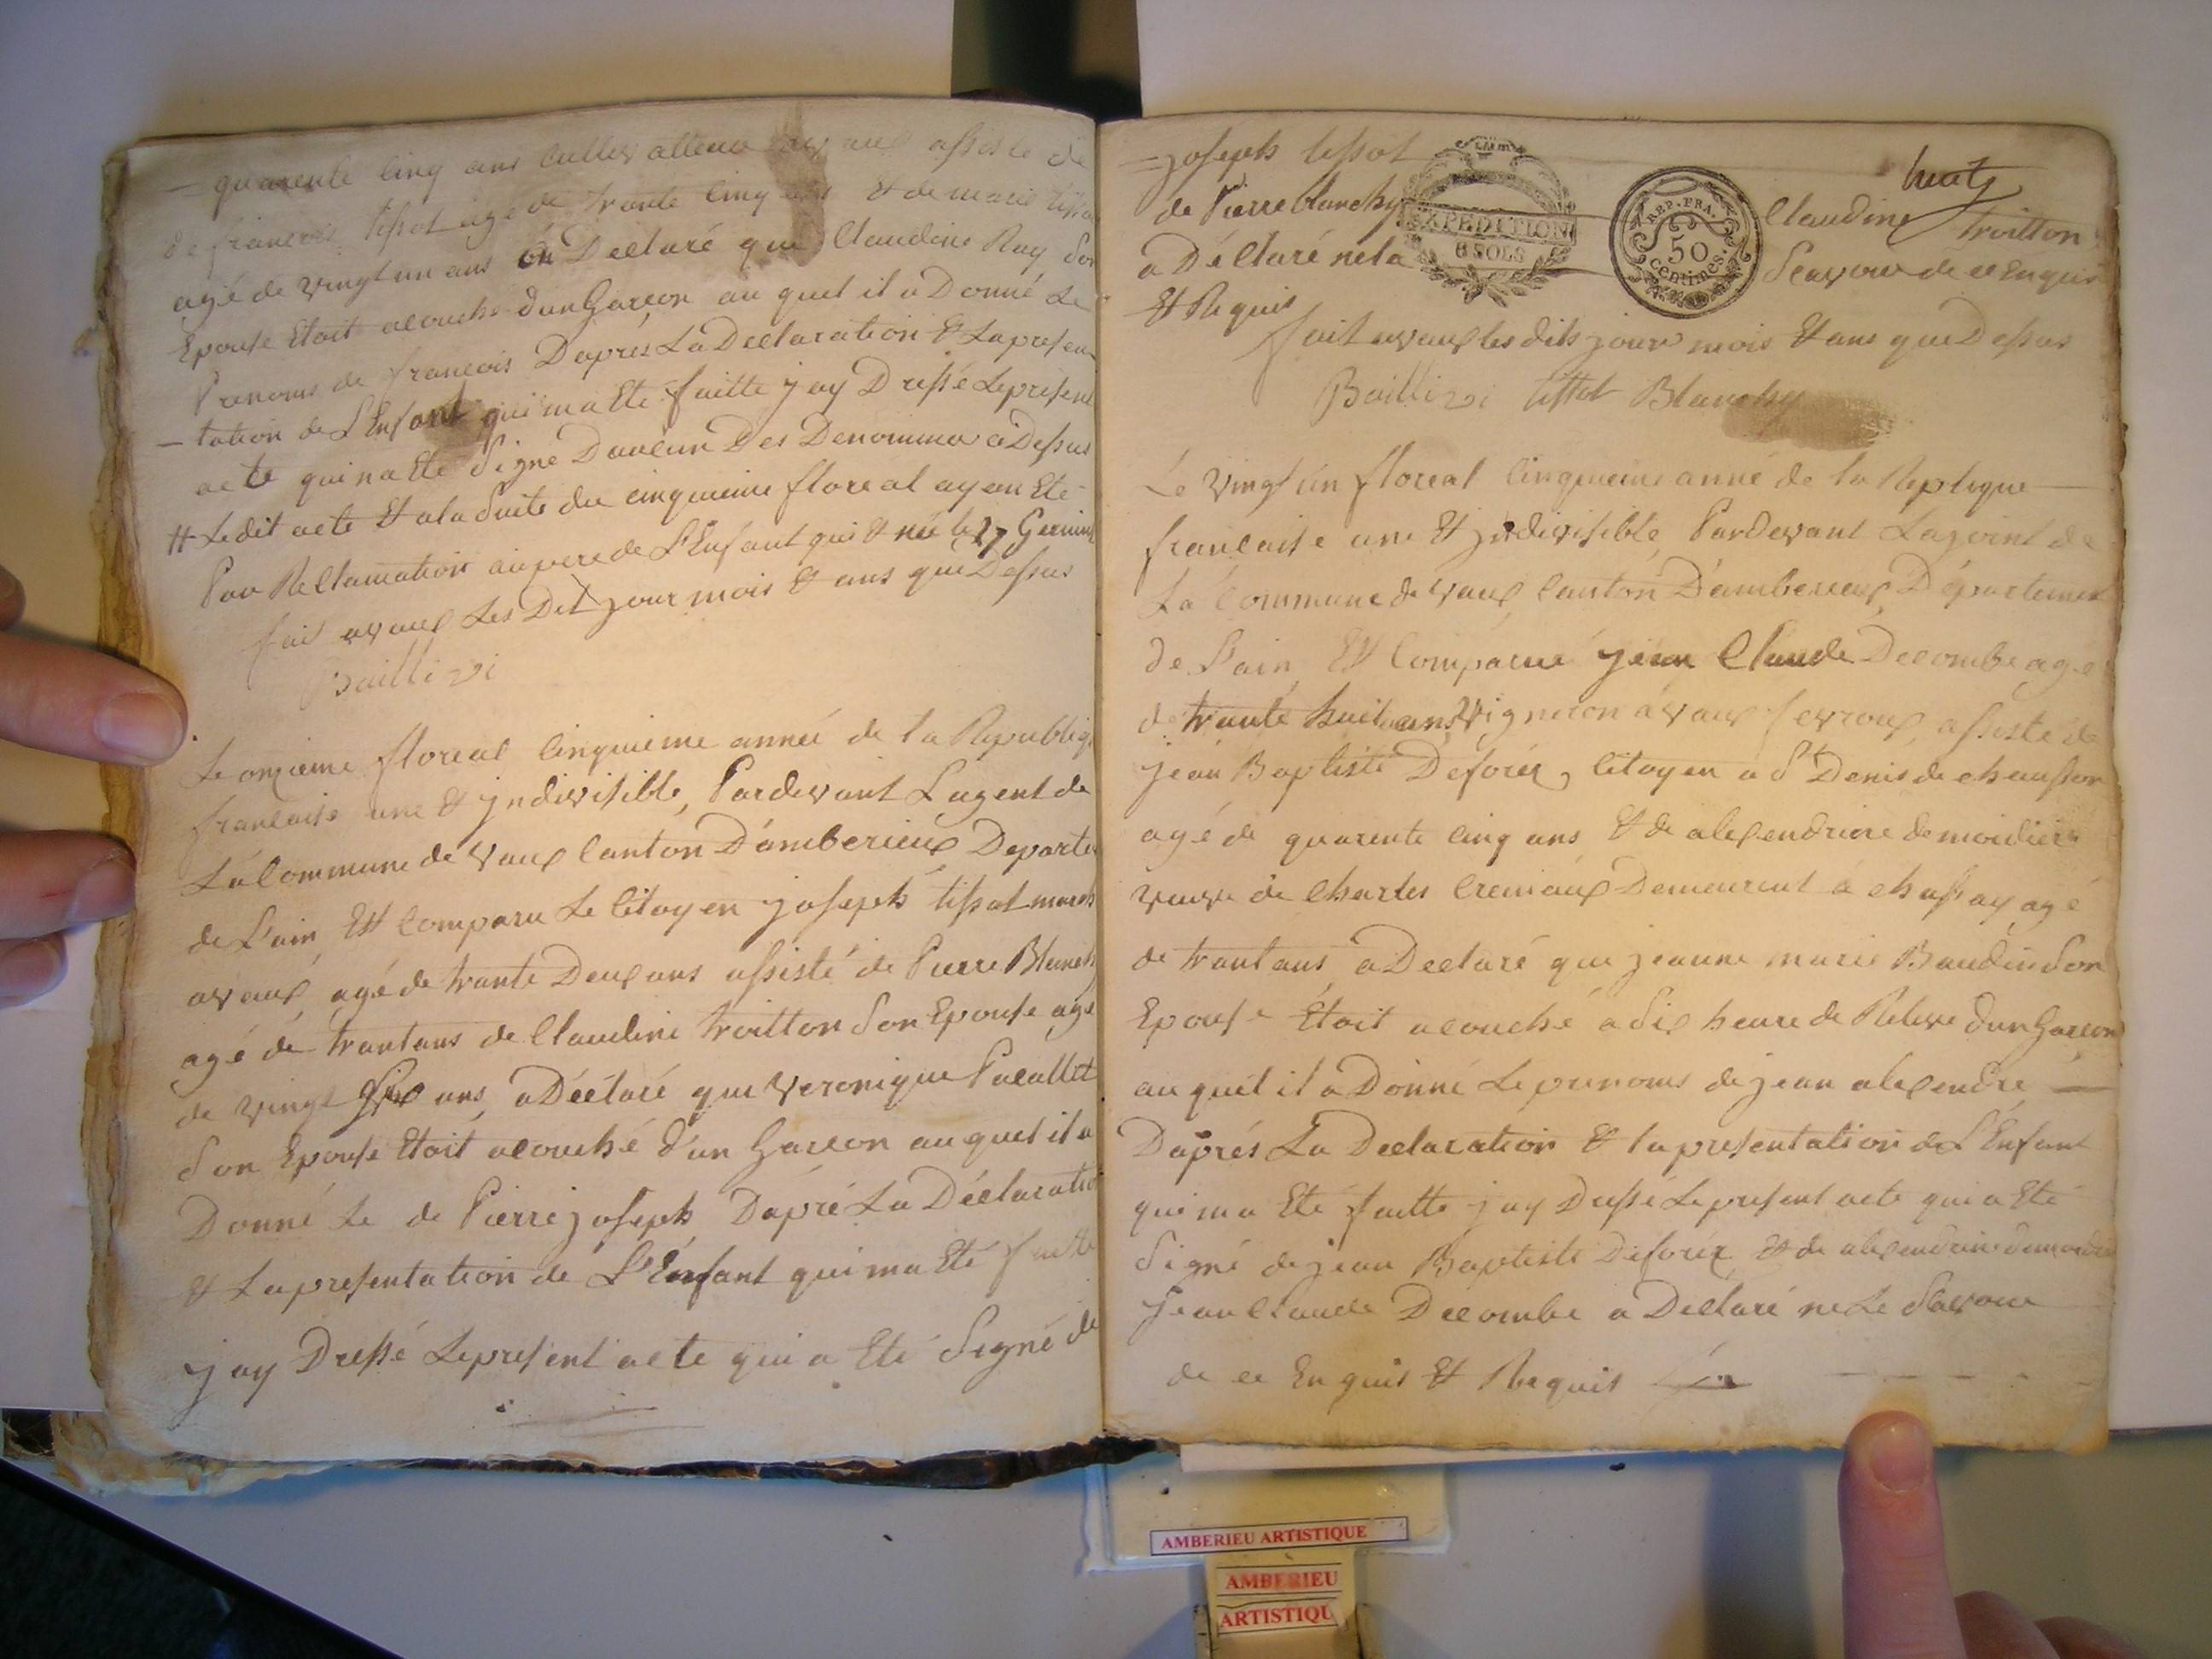 quarente cinq ans cultivatteur avaux assiste de
de francois tissot agé de trante cinq ans Et de marie tissot
agé de vingt un ans on Declaré que Claudine Ray son
Epouse Etoit acouché dun Garcon au quel il a Donné Le
Prenoms de francois Dapres La Declaration Et Lapresen
tation de L'Enfant qui ma Eté faitte jay Dressé Lepresent
acte qui na Eté signé Daucun Des Denommer ci Dessus
# Le dit acte Et ala suite du cinquieme floreal ayen Eté
Par Reclamation au pere de L'Enfant qui Et née le 27 Germinal
fait avaux Les Dit jour mois Et ans que Dessus
Bailli
Le onzieme floreal Cinquieme anneé de la Republiq
francaise une Et jndivisible, Pardevant Lagent de
La Commune de vaux Canton D'amberieux Departe
de L'ain, Est Comparu Le Citoyen joseph tissot march
avaux, agé de trante Deux ans assisté de Pierre Blanch
agé de trantans de Claudine troitton son Epouse agé
de vingt six ans, a Déclaré que veronique Pacallet
son Epouse Etoit acouché d'un Garcon au quel il a
Donné Le de Pierre joseph Dapré La Déclaratio
Et Lapresentation de L'Enfant qui ma Eté faitte
jay Dressé Lepresent acte qui a Eté signé de
joseph tissot
de Pierre blanchy Claudine troitton
a Déclaré nela scavoir de ce Enquis
Et Requis
EXPEDITION
8 SOLS
REP. FRA.
50
centimes.
fait avaux les dits jour mois Et ans que Dessus
Bailli tissot Blanchy
Le vingt un floreal Cinquieme anné de la Repliqque
francaise une Et jndivisible, Pardevant Lajoint de
La Commune de vaux, Canton D'amberieux, Département
de L'ain, Est Comparue jean Claude Decombe agé
de trante huit ans, vigneron avaux fevroux, assisté de
jean Baptiste Deforéz, Citoyen a St Denis de chausson
agé de quarente cinq ans Et de alexendrine demoidiere
veuve de Charles Cremaux Demeurent à chassay agé
de trantans, a Declaré que jeanne marie Baudin son
Epouse Étoit acouché a six heure de Releve dun Garcon
au quél il a Donné Le prenoms de jean alexendre,
Daprés La Declaration Et la presentation de L'Enfant
qui ma Eté faitte jay Dressé Le présent acte qui a Eté
signé de jean Baptiste Deforéz Et de alexendrine
Jean Claude Decombe a Declaré ne Le scavoir
de ce Enquis Et Requis
AMBERIEU ARTISTIQUE
AMBERIEU
ARTISTIQU